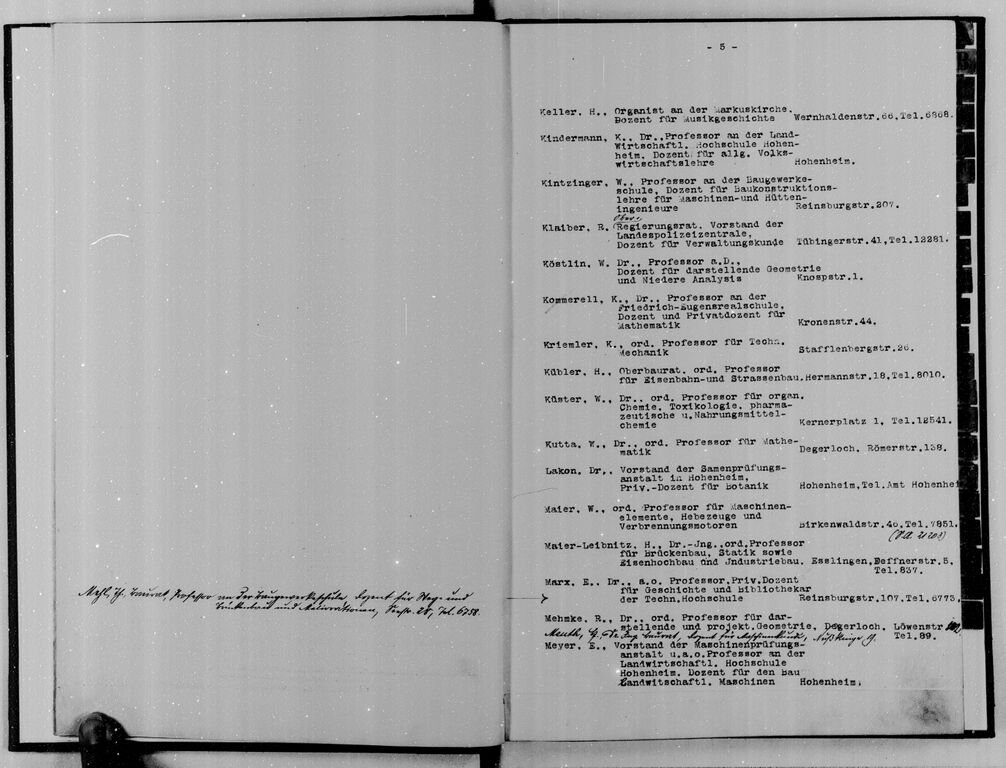 Mehl, Th. Baurat, Professor an der Baugewerkschule, Dozent für Wege- und
Brückenbau und Meliorationen, Seestr. 28, Tel. 6758.
- 5 -
Keller, H., Organist an der Markuskirche.
Dozent für Musikgeschichte Wernhaldenstr.66,Tel.6868.
Kindermann, K., Dr.,Professor an der Land-
Wirtschaftl. Hochschule Hohen-
heim. Dozent für allg. Volks-
wirtschaftslehre Hohenheim.
Kintzinger, W., Professor an der Baugewerke-
schule, Dozent für Baukonstruktions-
lehre für Maschinen-und Hütten-
ingenieure Reinsburgstr.207.
Ober-
Klaiber, R. Regierungsrat. Vorstand der
Landespolizeizentrale,
Dozent für Verwaltungskunde Tübingerstr.41,Tel.12281.
Köstlin, W. Dr., Professor a.D.,
Dozent für darstellende Geometrie
und Niedere Analysis Knospstr.1.
Kommerell, K., Dr., Professor an der
Friedrich-Eugensrealschule,
Dozent und Privatdozent für
Mathematik Kronenstr.44.
Kriemler, K., ord. Professor für Techn.
Mechanik Stafflenbergstr.26.
Kübler, H., Oberbaurat, ord. Professor
für Eisenbahn-und Strassenbau,Hermannstr.18,Tel.8010.
Küster, W., Dr., ord. Professor für organ.
Chemie, Toxikologie, pharma-
zeutische u.Nahrungsmittel-
chemie Kernerplatz 1, Tel.12541.
Kutta, W., Dr., ord. Professor für Mathe-
matik Degerloch, Römerstr.138.
Lakon, Dr., Vorstand der Samenprüfungs-
anstalt in Hohenheim,
Priv.-Dozent für Botanik Hohenheim,Tel.Amt Hohenhei
Maier, W., ord. Professor für Maschinen-
elemente, Hebezeuge und
Verbrennungsmotoren Birkenwaldstr.46,Tel.7851.
Maier-Leibnitz, H., Dr.-Jng.,ord.Professor
für Brückenbau, Statik sowie
Eisenhochbau und Jndustriebau. Esslingen,Deffnerstr.5,
Tel.837.
Marx, E., Dr., a.o. Professor,Priv.Dozent
für Geschichte und Bibliothekar
der Techn.Hochschule Reinsburgstr.107,Tel.6773.
Mehmke, R., Dr., ord. Professor für dar-
stellende und projekt.Geometrie, Degerloch, Löwenstr
Tel.89.
Meuth, H. Dr. Ing. Baurat, Dozent für Maschinenkunde,
Meyer, E., Vorstand der Maschinenprüfungs-
anstalt u.a.o.Professor an der
Landwirtschaftl. Hochschule
Hohenheim. Dozent für den Bau
Landwitschaftl. Maschinen Hohenheim.